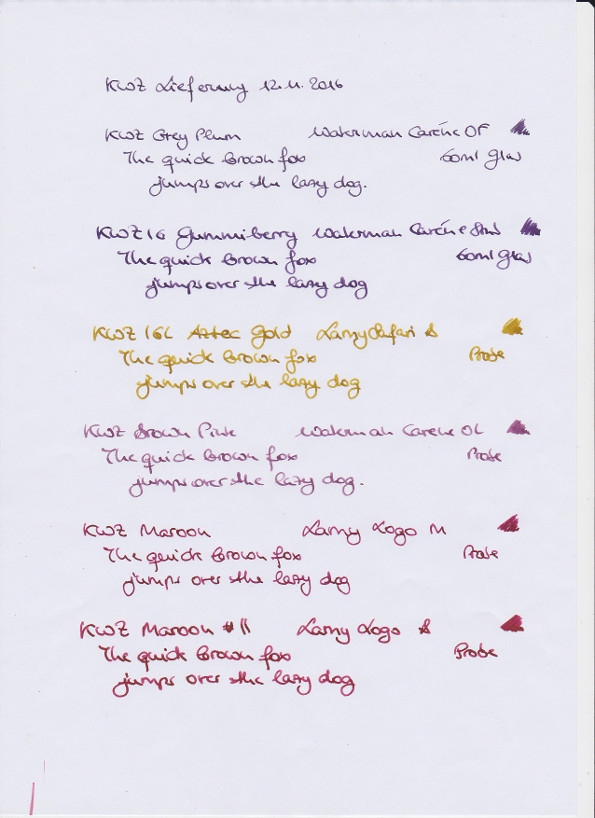 KWZ Lieferung 12.11.2016
KWZ Grey Plum Waterman Carène OF
The quick brown fox 60ml Glas
jumps over the lazy dog.
KWZ IG Gummiberry Waterman Carène
The quick brown fox 60ml Glas
jumps over the lazy dog
KWZ IGL Aztec Gold Lamy Safari
The quick brown fox Probe
jumps over the lazy dog
KWZ Brown Pink Waterman Carène
The quick brown fox Probe
jumps over the lazy dog.
KWZ Maroon Lamy Logo M
The quick brown fox Probe
jumps over the lazy dog
KWZ Maroon #II Lamy Logo
The quick brown fox Probe
jumps over the lazy dog